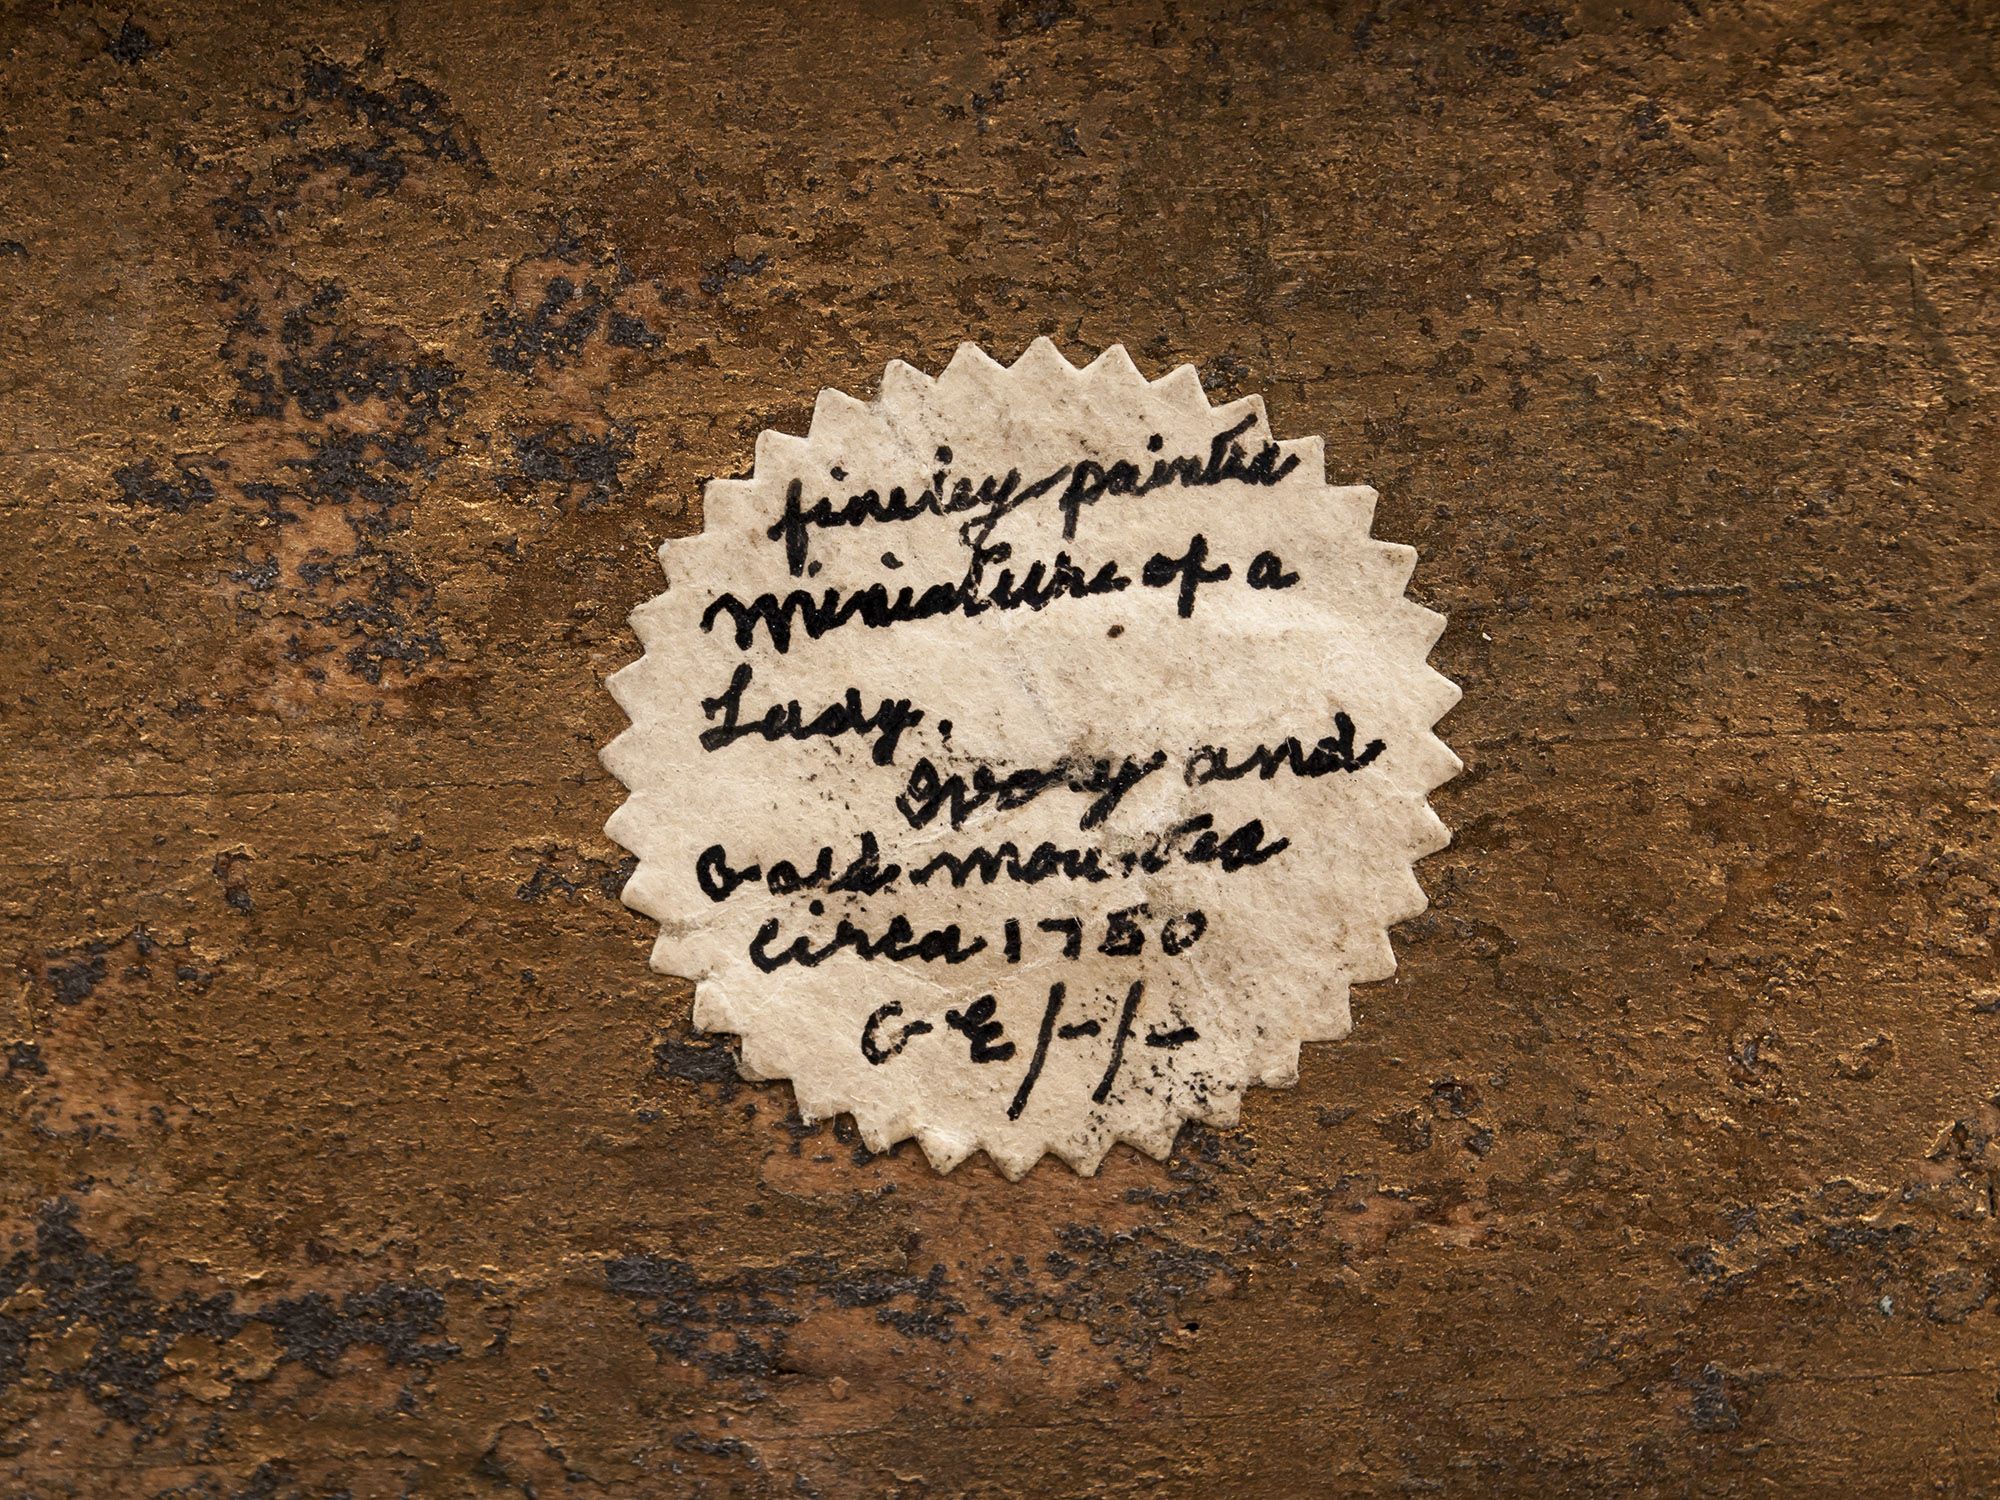 fineley painted
miniature of a
Lady.
Ivory and
Gold mounted
circa 1750
G E/-/-